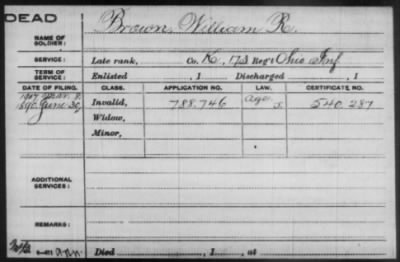 DEAD
NAME OF SOLDIER: Brown, William R.
SERVICE: Late rank, Co. K, 173 Reg't Ohio Inf
TERM OF SERVICE: Enlisted , 1 Discharged , 1
DATE OF FILING. CLASS. APPLICATION NO. LAW. CERTIFICATE NO.
1890 June 30 Invalid, 788.746 540.287
Widow,
Minor,
ADDITIONAL SERVICES:
REMARKS:
Died , 1 , at